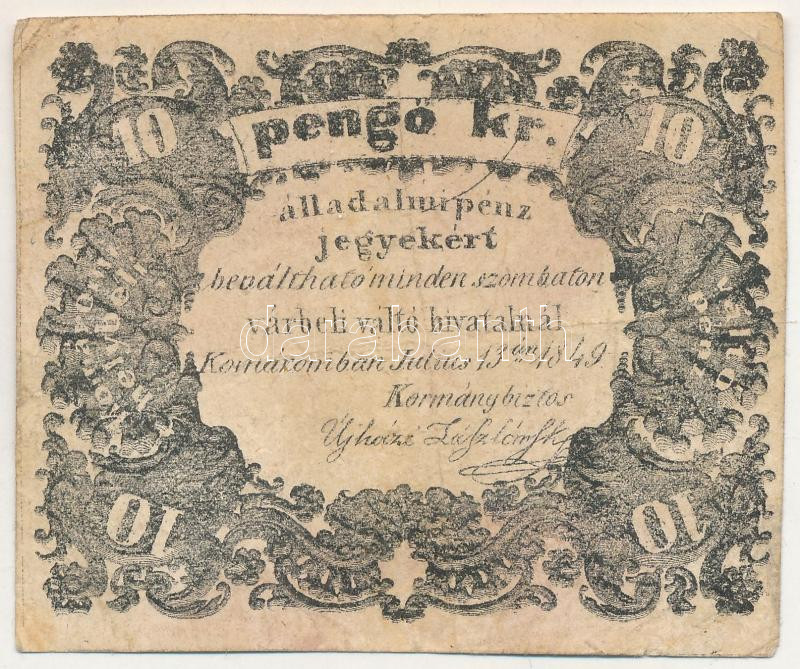 10 pengő kr. 10
álladalmi pénz
jegyekért
beváltható minden szombaton
várbeli váltó hivatalnál
darabanth
Komáromban Julius 13án 1849
Kormánybiztos
Újházi László mk
10 10